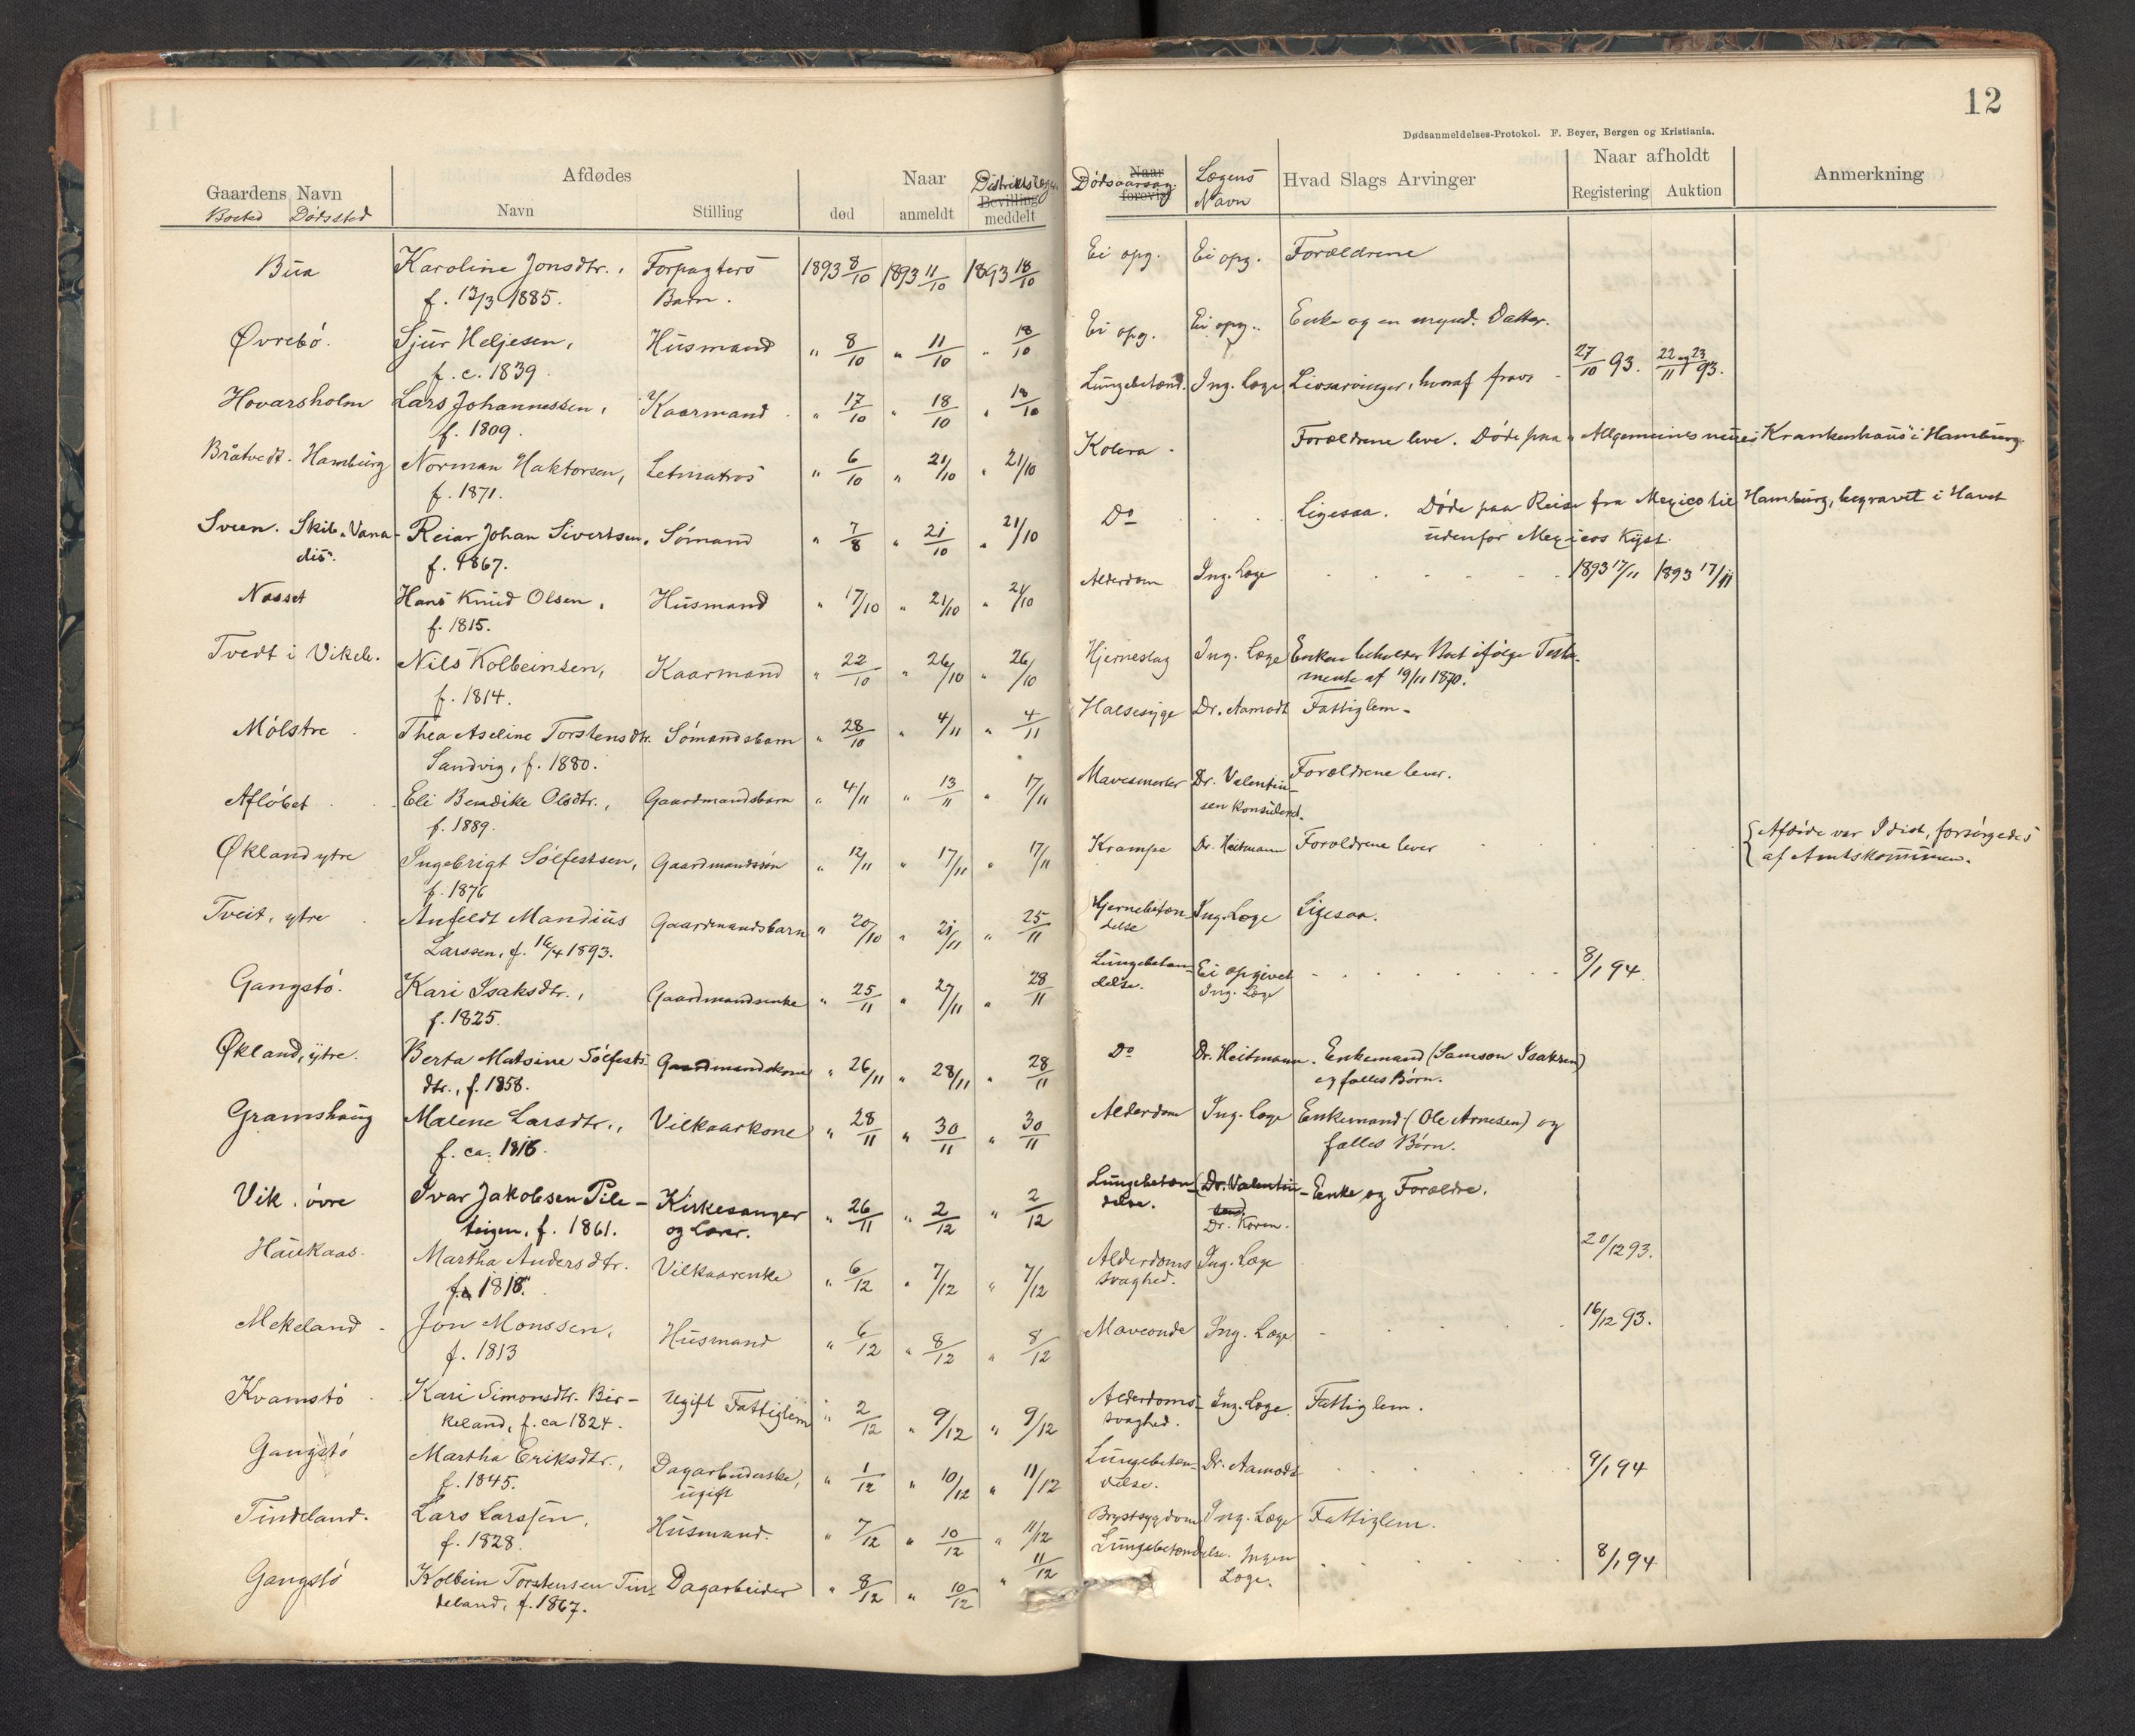 12
Dødsanmeldelses-Protokol. F. Beyer, Bergen og Kristiania.
Gaardens Navn
Bosted Dødssted
Afdødes
Navn Stilling
Naar
død anmeldt Bevilling meddelt
Naar forevist
Dødsaarsag.
Lægens Navn
Hvad Slags Arvinger
Naar afholdt
Registering Auktion
Anmerkning
Bua Karoline Jonsdtr., Forpagters 1893 8/10 1893 11/10 1893 18/10 Ei opg. Ei opg. Forældrene
f. 13/3 1885. Barn.
Øvrebö. Sjur Heljesen, Husmand " 8/10 " 11/10 " 18/10 Ei opg. Ei opg. Enke og en mynd. Datter.
f. c. 1839
Hovarsholm Lars Johannessen, Kaarmand " 17/10 " 18/10 " 18/10 Lungebetænd. Ing. Læge Livsarvinger, hvoraf frav. 27/10 93. 22 og 23/11 93.
f. 1809.
Bråtvedt. Hamburg Norman Haktorsen, Letmatros " 6/10 " 21/10 " 21/10 Kolera. Forældrene leve. Døde paa "Allgemeines neues Krankenhaus" i Hamburg.
f. 1871.
Sveen. Skib "Vana- Reiar Johan Sivertsen. Sómand " 7/8 " 21/10 " 21/10 Do Ligesaa. Døde paa Reise fra Mexico til Hamburg, begravet i Havet
dis". f. 1867. udenfor Mexicos Kyst.
Næsset Hans Knud Olsen, Husmand " 17/10 " 21/10 " 21/10 Alderdom Ing. Læge 1893 17/11 1893 17/11
f. 1815.
Tvedt i Vikeb. Nils Kolbeinsen, Kaarmand " 22/10 " 26/10 " 26/10 Hjerneslag Ing. Læge Enken beholder Boet ifølge Testa-
f. 1814. mente af 19/11 1870.
Mólstre Thea Aseline Torstensdtr. Sómandsbarn " 28/10 " 4/11 " 4/11 Halsesyge Dr. Aamodt Fattiglem.
Sandvig, f. 1880.
Aflöbet Eli Bendike Olsdtr., Gaardmandsbarn " 4/11 " 13/11 " 17/11 Mavesmerter Dr. Valentin- Forældrene lever.
f. 1889. sen konsulerd.
Økland ytre Ingebrigt Sólfestsen, Gaardmandssøn " 12/11 " 17/11 " 17/11 Krampe Dr. Heitmann Forældrene lever Afdøde var Idiot, forsörgedes
f. 1876 af Amtskommunen.
Tveit, ytre Anfeldt Mandius Gaardmandsbarn " 20/10 " 21/11 " 25/11 Hjernebetæn- Ing. Læge Ligesaa.
Larssen, f. 16/4 1893. delse
Gangstó. Kari Isaksdtr., Gaardmandsenke " 25/11 " 27/11 " 28/11 Lungebetæn- Ei opgivet 8/1 94.
f. 1825. delse. Ing. Læge
Økland, ytre. Berta Matsine Sólfests- Gaardmandskone " 26/11 " 28/11 " 28/11 Do Dr. Heitmann. Enkemand (Samson Isaksen)
dtr., f. 1858. og fælles Börn.
Gramshaug Malene Larsdtr., Vilkaarkone " 28/11 " 30/11 " 30/11 Alderdom Ing. Læge Enkemand (Ole Arnesen) og
f. ca. 1816. fælles Börn.
Vik, óvre Ivar Jakobsen Pile- Kirkesanger " 26/11 " 2/12 " 2/12 Lungebetæn- (Dr. Valentin- Enke og Forældre.
teigen, f. 1861. og Lærer. delse. sen) Dr. Koren.
Haukaas. Martha Andersdtr. Vilkaarenke " 6/12 " 7/12 " 7/12 Alderdoms Ing. Læge 20/12 93.
f. 1818. svaghed.
Mekeland Jon Monssen, Husmand " 6/12 " 8/12 " 8/12 Maveonde Ing. Læge 16/12 93.
f. 1813
Kvamstó Kari Simonsdtr. Bir- Ugift Fattiglem " 2/12 " 9/12 " 9/12 Alderdoms- Ing. Læge. Fattiglem.
keland, f. ca 1824. svaghed.
Gangstó Martha Eriksdtr., Dagarbeiderske, " 1/12 " 10/12 " 11/12 Lungebetæn- Dr. Aamodt 9/1 94
f. 1845. ugift delse.
Tindeland. Lars Larssen, Husmand. " 7/12 " 10/12 " 11/12 Brystsygdom Ing. Læge Fattiglem.
f. 1828.
Gangstó Kolbein Torstensen Tin- Dagarbeider " 8/12 " 10/12 " 11/12 Lungebetændelse. Ingen 8/1 94
deland, f. 1867. Læge.